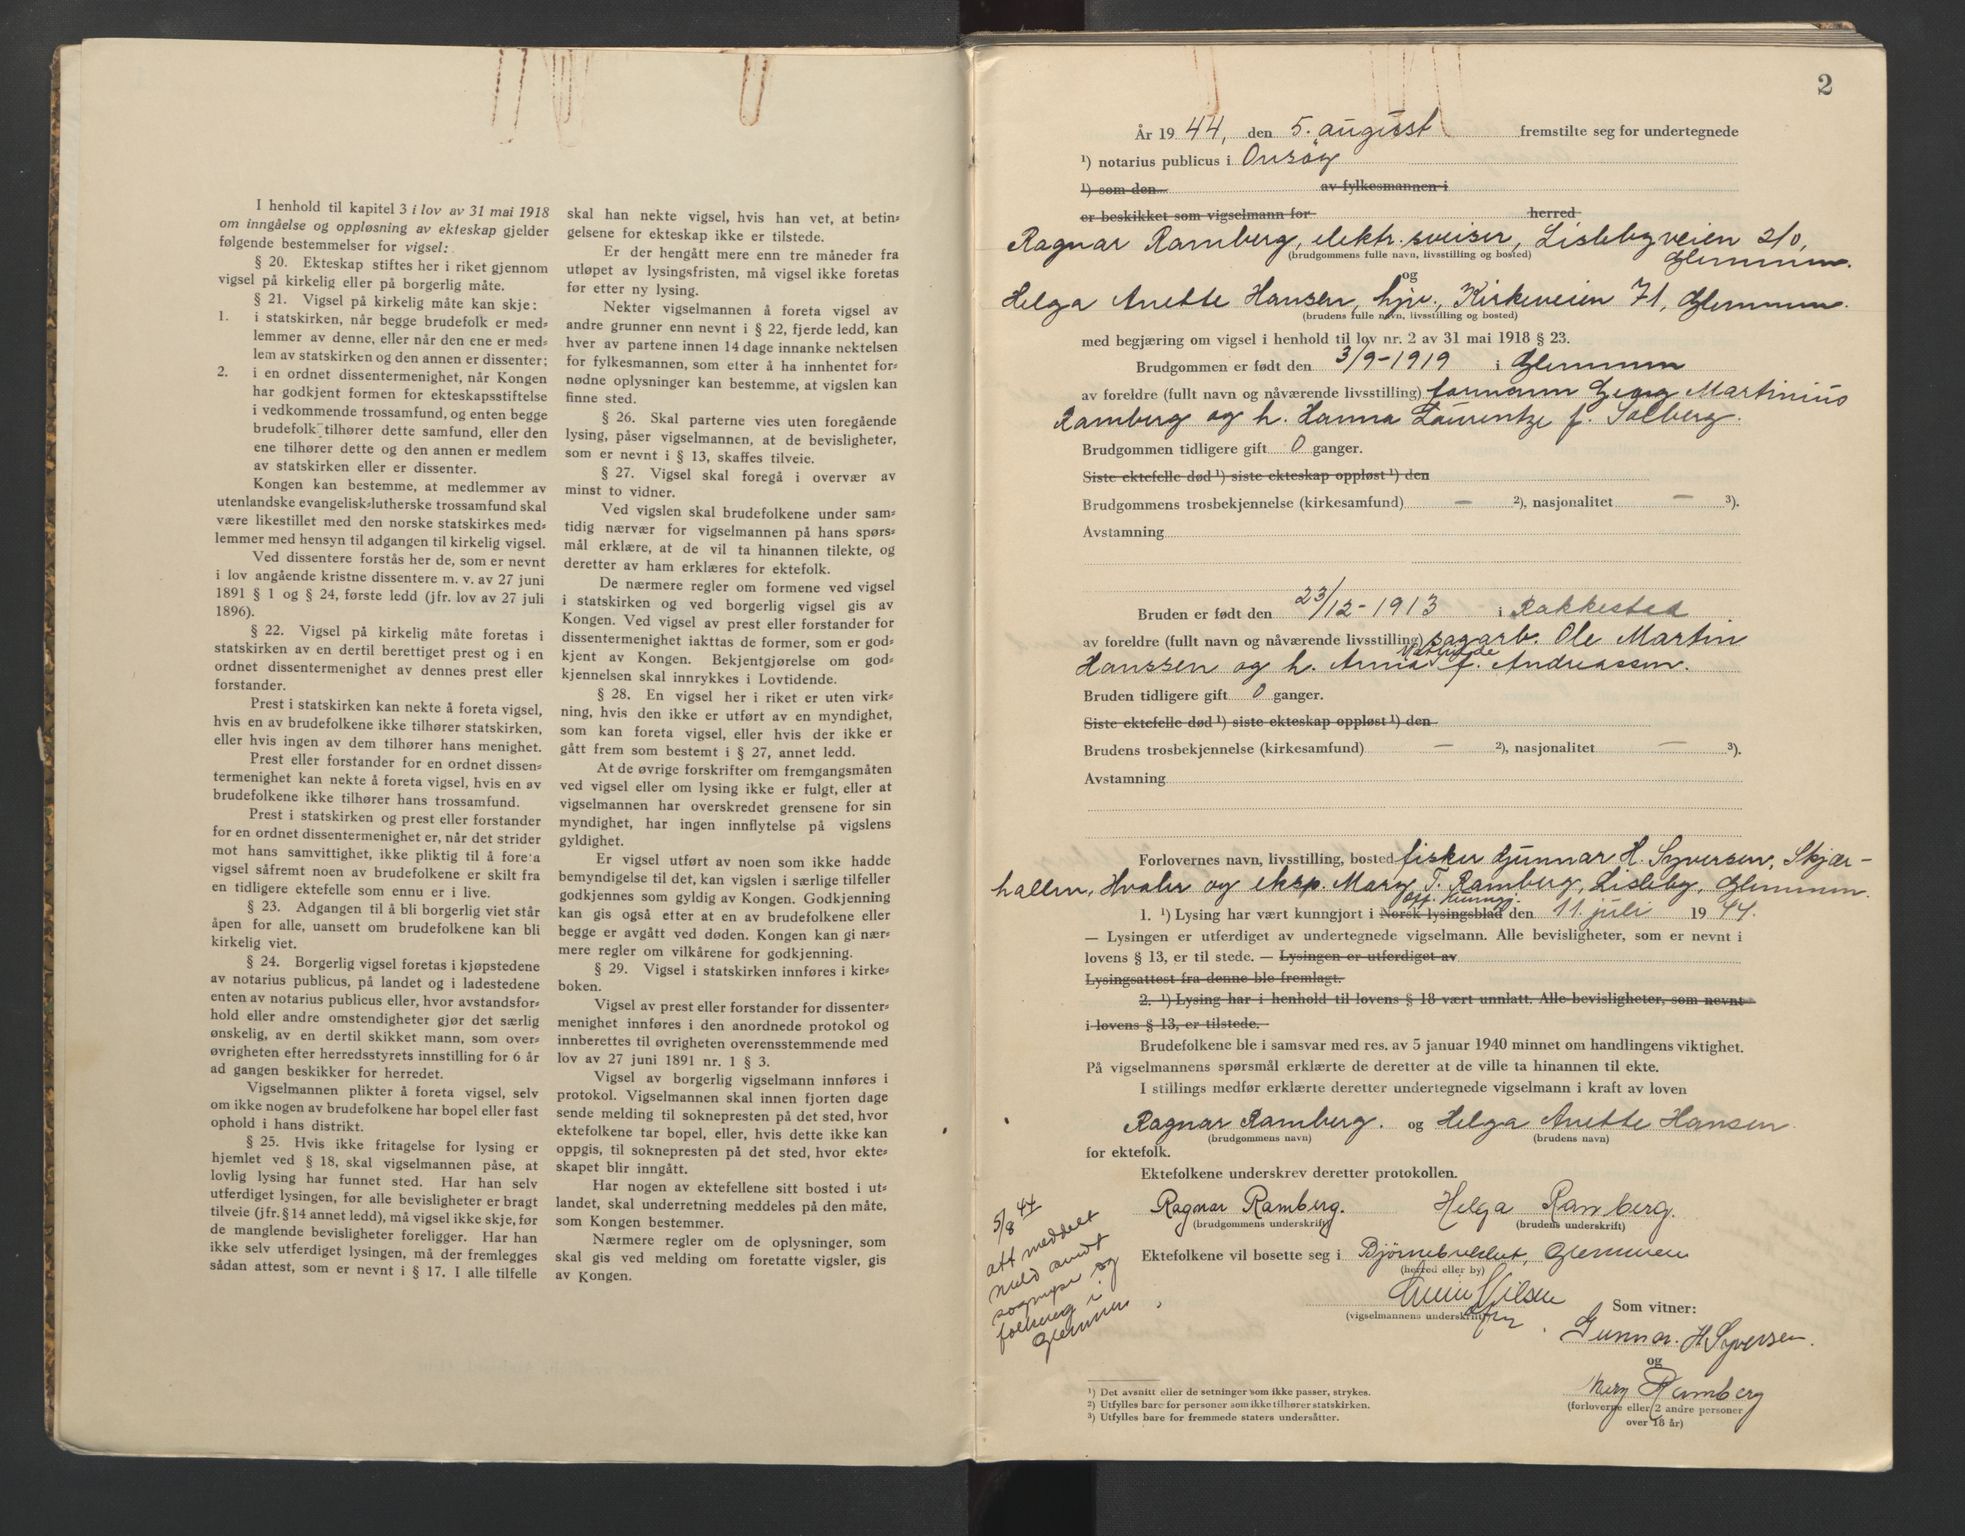 I henhold til kapitel 3 i lov av 31 mai 1918
om inngåelse og oppløsning av ekteskap gjelder
følgende bestemmelser for vigsel:
§ 20. Ekteskap stiftes her i riket gjennom
vigsel på kirkelig eller på borgerlig måte.
§ 21. Vigsel på kirkelig måte kan skje:
1. i statskirken, når begge brudefolk er med-
lemmer av denne, eller når den ene er med-
lem av statskirken og den annen er dissenter;
2. i en ordnet dissentermenighet, når Kongen
har godkjent formen for ekteskapsstiftelse
i vedkommende trossamfund, og enten begge
brudefolk tilhører dette samfund, eller den
ene tilhører dette og den annen er medlem
av statskirken eller er dissenter.
Kongen kan bestemme, at medlemmer av
utenlandske evangelisk-lutherske trossamfund skal
være likestillet med den norske statskirkes med-
lemmer med hensyn til adgangen til kirkelig vigsel.
Ved dissentere forstås her de, som er nevnt
i lov angående kristne dissentere m. v. av 27 juni
1891 § 1 og § 24, første ledd (jfr. lov av 27 juli
1896).
§ 22. Vigsel på kirkelig måte foretas i
statskirken av en dertil berettiget prest og i en
ordnet dissentermenighet av dennes prest eller
forstander.
Prest i statskirken kan nekte å foreta vigsel,
hvis en av brudefolkene ikke tilhører statskirken,
eller hvis ingen av dem tilhører hans menighet.
Prest eller forstander for en ordnet dissen-
termenighet kan nekte å foreta vigsel, hvis en av
brudefolkene ikke tilhører hans trossamfund.
Prest i statskirken og prest eller forstander
for en ordnet dissentermenighet er, når det strider
mot hans samvittighet, ikke pliktig til å foreta
vigsel såfremt noen av brudefolkene er skilt fra
en tidligere ektefelle som ennu er i live.
§ 23. Adgangen til å bli borgerlig viet står
åpen for alle, uansett om brudefolkene kan bli
kirkelig viet.
§ 24. Borgerlig vigsel foretas i kjøpstedene
av notarius publicus, på landet og i ladestedene
enten av notarius publicus eller, hvor avstandsfor-
hold eller andre omstendigheter gjør det særlig
ønskelig, av en dertil skikket mann, som over-
øvrigheten efter herredsstyrets innstilling for 6 år
ad gangen beskikker for herredet.
Vigselmannen plikter å foreta vigsel, selv
om ikke nogen av brudefolkene har bopel eller fast
ophold i hans distrikt.
§ 25. Hvis ikke fritagelse for lysing er
hjemlet ved § 18, skal vigselmannen påse, at
lovlig lysing har funnet sted. Har han selv
utferdiget lysingen, før alle bevisligheter er bragt
tilveie (jfr. § 14 annet ledd), må vigsel ikke skje, før
de manglende bevisligheter foreligger. Har han
ikke selv utferdiget lysingen, må der fremlegges
sådan attest, som er nevnt i § 17. I alle tilfelle
skal han nekte vigsel, hvis han vet, at betin-
gelsene for ekteskap ikke er tilstede.
Er der hengått mere enn tre måneder fra
utløpet av lysingsfristen, må vigsel ikke foretas
før etter ny lysing.
Nekter vigselmannen å foreta vigsel av
andre grunner enn nevnt i § 22, fjerde ledd, kan
hver av partene innen 14 dage innanke nektelsen
for fylkesmannen, som etter å ha innhentet for-
nødne oplysninger kan bestemme, at vigslen kan
finne sted.
§ 26. Skal parterne vies uten foregående
lysing, påser vigselmannen, at de bevisligheter,
som er nevnt i § 13, skaffes tilveie.
§ 27. Vigsel skal foregå i overvær av
minst to vidner.
Ved vigslen skal brudefolkene under sam-
tidig nærvær for vigselmannen på hans spørs-
mål erklære, at de vil ta hinannen tilekte, og
deretter av ham erklæres for ektefolk.
De nærmere regler om formene ved vigsel
i statskirken og ved borgerlig vigsel gis av
Kongen. Ved vigsel av prest eller forstander for
dissentermenighet iakttas de former, som er god-
kjent av Kongen. Bekjentgjørelse om god-
kjennelsen skal innrykkes i Lovtidende.
§ 28. En vigsel her i riket er uten virk-
ning, hvis den ikke er utført av en myndighet,
som kan foreta vigsel, eller hvis der ikke er
gått frem som bestemt i § 27, annet ledd.
At de øvrige forskrifter om fremgangsmåten
ved vigsel eller om lysing ikke er fulgt, eller at
vigselmannen har overskredet grensene for sin
myndighet, har ingen innflytelse på vigslens
gyldighet.
Er vigsel utført av noen som ikke hadde
bemyndigelse til det, kan vigslen i særlige tilfeller
godkjennes som gyldig av Kongen. Godkjenning
kan gis også etter at en av brudefolkene eller
begge er avgått ved døden. Kongen kan gi nær-
mere regler om vilkårene for godkjenning.
§ 29. Vigsel i statskirken innføres i kirke-
boken.
Vigsel av prest eller forstander for dissenter-
menighet innføres i den anordnede protokol og
innberettes til øvrigheten overensstemmende med
lov av 27 juni 1891 nr. 1 § 3.
Vigsel av borgerlig vigselmann innføres i
protokol. Vigselmannen skal innen fjorten dage
sende melding til soknepresten på det sted, hvor
ektefolkene tar bopel, eller, hvis dette ikke kan
oppgis, til soknepresten på det sted, hvor ekte-
skapet blir inngått.
Har nogen av ektefellene sitt bosted i ut-
landet, skal underretning meddeles på den måte,
som Kongen bestemmer.
Nærmere regler om de oplysninger, som
skal gis ved melding om foretatte vigsler, gis
av Kongen.
2
År 1944, den 5. august fremstilte seg for undertegnede
¹) notarius publicus i Onsøy
¹) som den av fylkesmannen i
er beskikket som vigselmann for herred
Ragnar Ramberg, elektr. sveiser, Lislebyveien 210,
Glemmen.
(brudgommens fulle navn, livsstilling og bosted)
og
Helga Anette Hansen, hjv., Kirkeveien 71, Glemmen.
(brudens fulle navn, livsstilling og bosted)
med begjæring om vigsel i henhold til lov nr. 2 av 31 mai 1918 § 23.
Brudgommen er født den 3/9-1919 i Glemmen
av foreldre (fullt navn og nåværende livsstilling) formann Georg Martinius
Ramberg og h. Hanna Laurentze f. Solberg.
Brudgommen tidligere gift 0 ganger.
Siste ektefelle død ¹) siste ekteskap oppløst ¹) den
Brudgommens trosbekjennelse (kirkesamfund) — ²), nasjonalitet — ³).
Avstamning
Bruden er født den 23/12-1913 i Rakkestad
av foreldre (fullt navn og nåværende livsstilling) sagarb. Ole Martin
Hanssen og h. Anna Mathilde f. Andreassen.
Bruden tidligere gift 0 ganger.
Siste ektefelle død ¹) siste ekteskap oppløst ¹) den
Brudens trosbekjennelse (kirkesamfund) — ²), nasjonalitet — ³).
Avstamning
Forlovernes navn, livsstilling, bosted fisker Gunnar H. Syversen, Skjær-
hallen, Hvaler og eksp. Mary T. Ramberg, Lisleby, Glemmen.
off. kunngj.
1. ¹) Lysing har vært kunngjort i Norsk lysingsblad den 11. juli 1944.
— Lysingen er utferdiget av undertegnede vigselmann. Alle bevisligheter, som er nevnt i
lovens § 13, er til stede. — Lysingen er utferdiget av
Lysingsattest fra denne ble fremlagt.
2. ¹) Lysing har i henhold til lovens § 18 vært unnlatt. Alle bevisligheter, som nevnt
i lovens § 13, er tilstede.
Brudefolkene ble i samsvar med res. av 5 januar 1940 minnet om handlingens viktighet.
På vigselmannens spørsmål erklærte de deretter at de ville ta hinannen til ekte.
I stillings medfør erklærte deretter undertegnede vigselmann i kraft av loven
Ragnar Ramberg. og Helga Anette Hansen.
(brudgommens navn) (brudens navn)
for ektefolk.
Ektefolkene underskrev deretter protokollen.
Ragnar Ramberg. Helga Ramberg.
(brudgommens underskrift) (brudens underskrift)
Ektefolkene vil bosette seg i Bjørnebrekket, Glemmen
(herred eller by)
Nilsen
(vigselmannens underskrift)
5/8 44
att meddelt
meld sendt
sognepr og
folkereg i
Glemmen
Som vitner:
Gunnar. H Syversen.
og
Mary Ramberg
(forloverne eller 2 andre personer
over 18 år)
¹) Det avsnitt eller de setninger som ikke passer, strykes.
²) Utfylles bare for personer som ikke tilhører statskirken.
³) Utfylles bare for fremmede staters undersåtter.